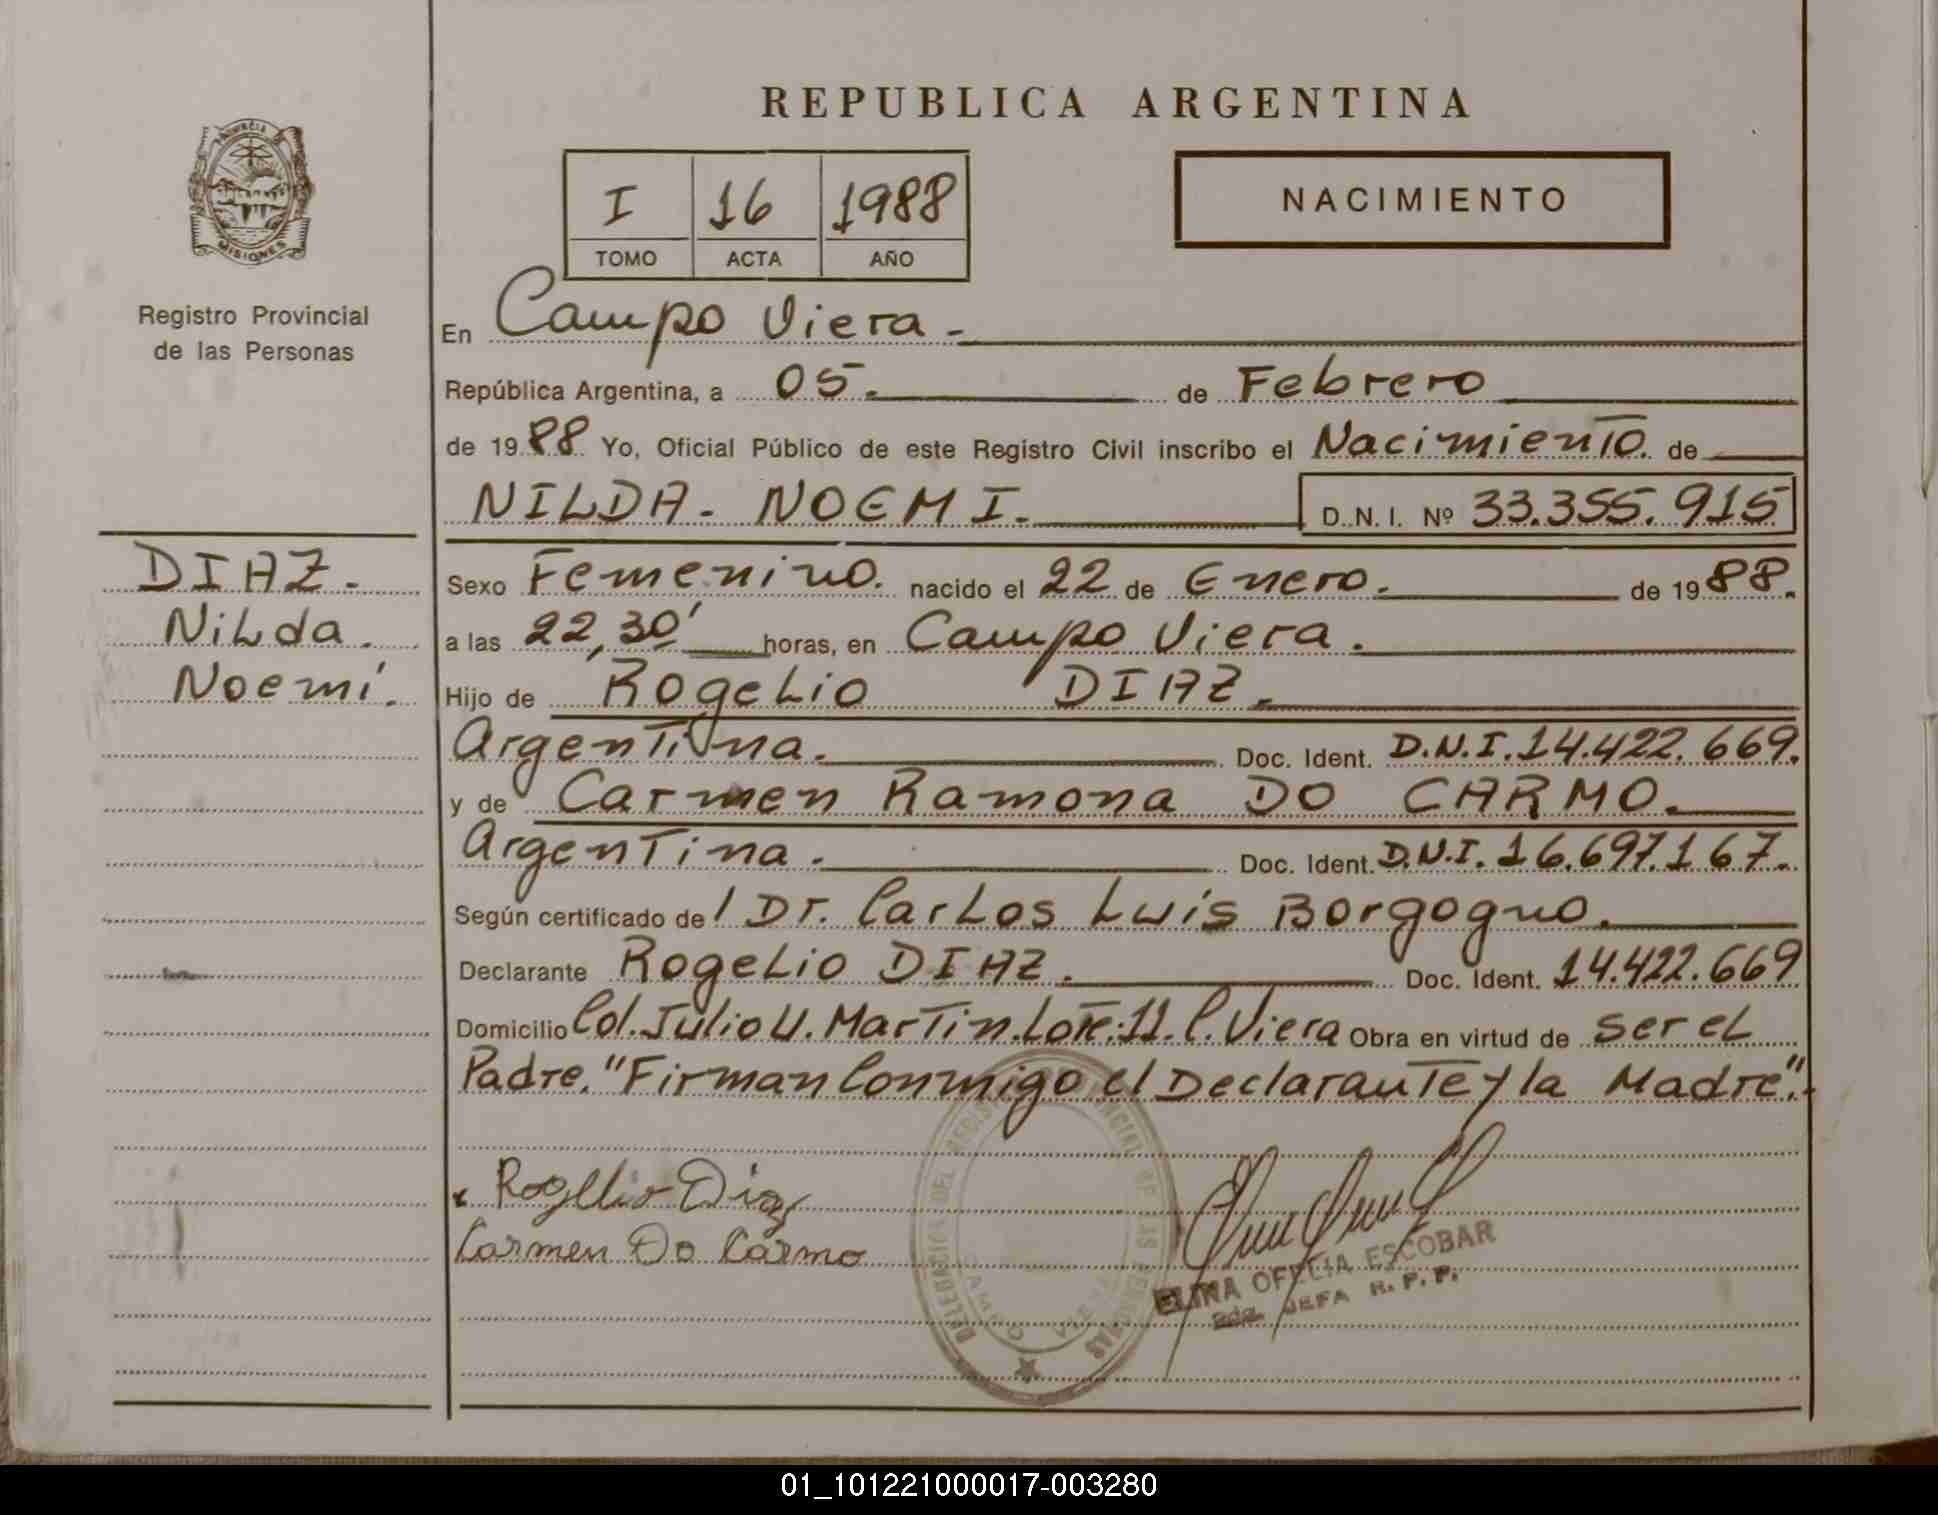 REPUBLICA ARGENTINA
PROVINCIA DE
MISIONES
Registro Provincial
de las Personas
I 16 1988
TOMO ACTA AÑO
NACIMIENTO
En Campo Viera.
República Argentina, a 05. de Febrero
de 1988 Yo, Oficial Público de este Registro Civil inscribo el Nacimiento. de
NILDA. NOEMI. D.N.I. Nº 33.355.915
DIAZ.
Nilda.
Noemí.
Sexo Femenino. nacido el 22 de Enero. de 1988.
a las 22,30' horas, en Campo Viera.
Hijo de Rogelio DIAZ.
Argentina. Doc. Ident. D.N.I.14.422.669.
y de Carmen Ramona DO CARMO.
Argentina. Doc. Ident. D.N.I.16.697.167.
Según certificado de / Dr. Carlos Luís Borgogno.
Declarante Rogelio DIAZ. Doc. Ident. 14.422.669
Domicilio Col. Julio U. Martin.Lote:11.C.Viera Obra en virtud de ser el
Padre."Firman Conmigo el Declarante y la Madre".
Rogelio Diaz
Carmen Do Carmo
DELEGACION DEL REGISTRO PROVINCIAL DE LAS PERSONAS
CAMPO VIERA
ELINA OFELIA ESCOBAR
JEFA R.P.P.
01_101221000017-003280